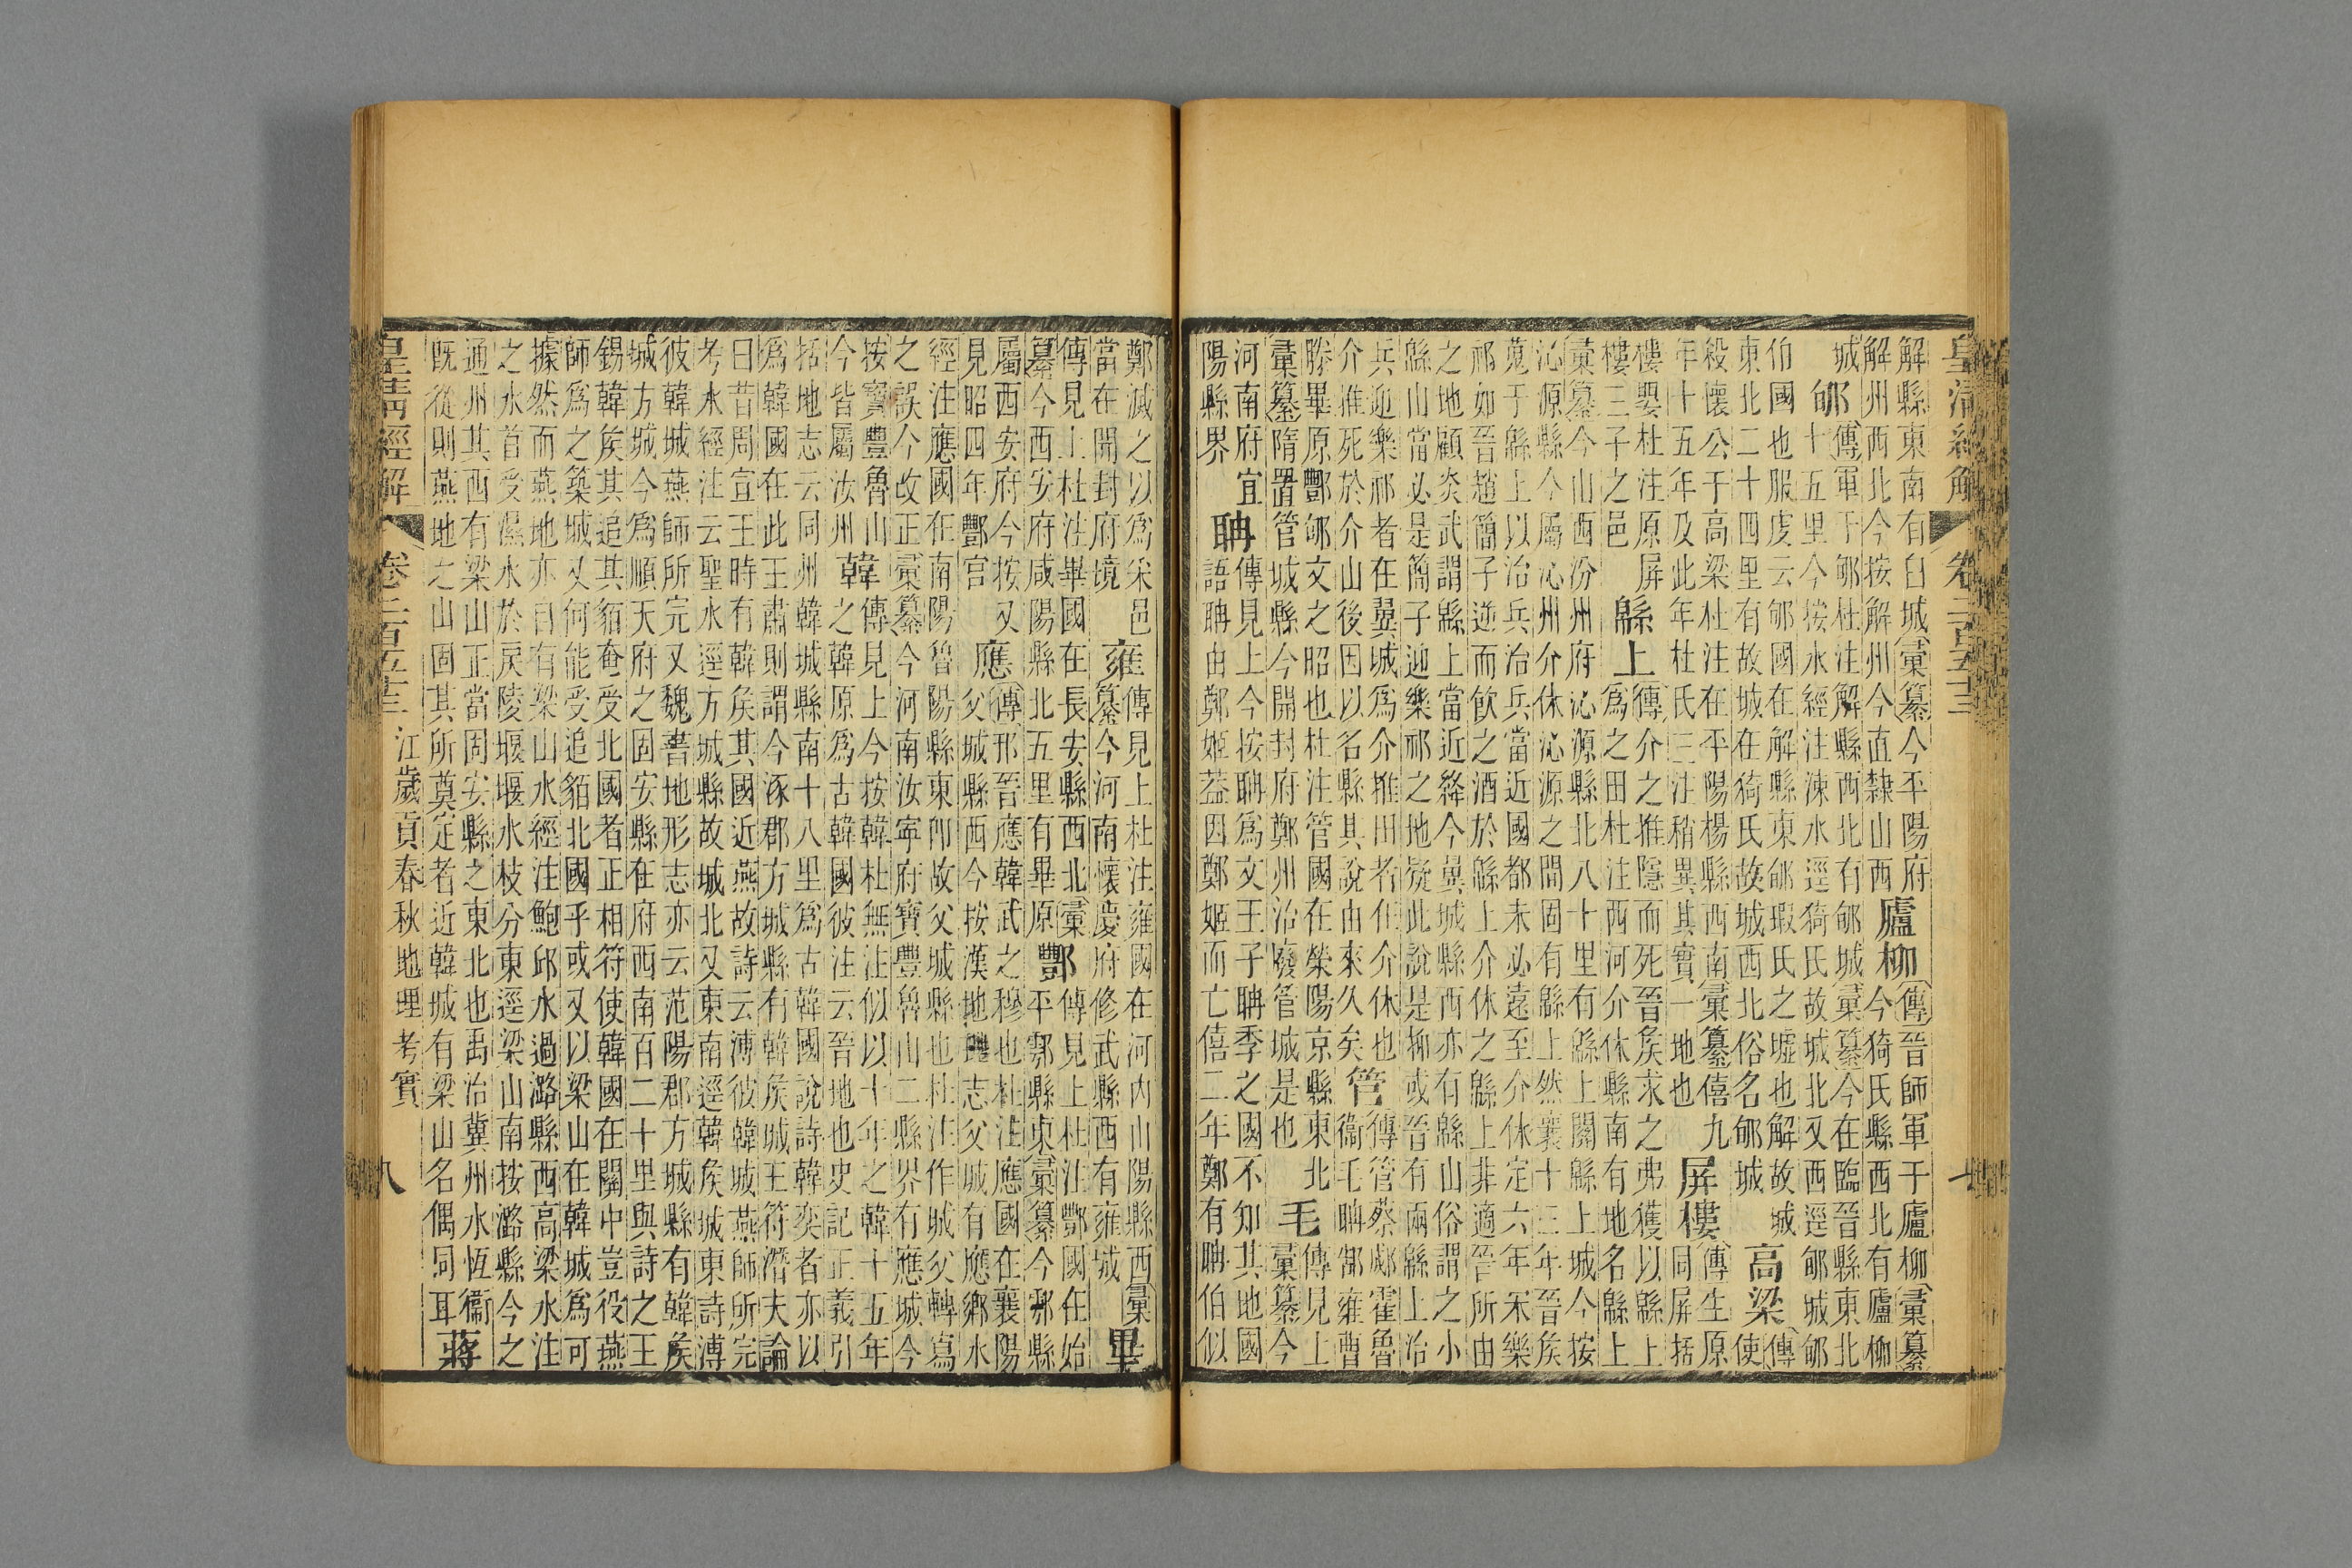 皇清經解 卷二百五十三 七
解縣東南有臼城彙纂今平陽府
解州西北今按解州今直隸山西
廬柳
傳晉師軍于廬柳彙纂
今猗氏縣西北有廬柳
城
郇
傳軍于郇杜注解縣西北有郇城彙纂今在臨晉縣東北
十五里今按水經注涑水逕猗氏故城北又西逕郇城郇
伯國也服虔云郇國在解縣東郇瑕氏之墟也解故城
東北二十四里有故城在猗氏故城西北俗名郇城
高梁
傳使
殺懷公于高梁杜注在平陽楊縣西南彙纂僖九
年十五年及此年杜氏三注稍異其實一地也
屏樓
傳生原
同屏括
樓嬰杜注原屏
樓三子之邑
緜上
傳介之推隱而死晉侯求之弗獲以緜上
爲之田杜注西河介休縣南有地名緜上
彙纂今山西汾州府沁源縣北八十里有緜上關緜上城今按
沁源縣今屬沁州介休沁源之間固有緜上然襄十三年晉侯
蒐于緜上以治兵治兵當近國都未必遠至介休定六年宋樂
祁如晉趙簡子逆而飮之酒於緜上介休之緜上非適晉所由
之地顧炎武謂緜上當近絳今翼城縣西亦有緜山俗謂之小
緜山當必是簡子迎樂祁之地疑此說是抑或晉有兩緜上治
兵迎樂祁者在翼城爲介推田者在介休也
介推死於介山後因以名縣其說由來久矣
管
傳管蔡郕霍魯
衞毛聃郜雍曹
滕畢原酆郇文之昭也杜注管國在滎陽京縣東北
彙纂隋置管城縣今開封府鄭州治廢管城是也
毛
傳見上
彙纂今
河南府宜
陽縣界
聃
傳見上今按聃爲文王子聃季之國不知其地國
語聃由鄭姬蓋因鄭姬而亡僖二年鄭有聃伯似
鄭滅之以爲采邑
當在開封府境
雍
傳見上杜注雍國在河内山陽縣西彙
纂今河南懷慶府修武縣西有雍城
畢
傳見上杜注畢國在長安縣西北彙
纂今西安府咸陽縣北五里有畢原
酆
傳見上杜注酆國在始
平鄠縣東彙纂今鄠縣
屬西安府今按又
見昭四年酆宮
應
傳邘晉應韓武之穆也杜注應國在襄陽
父城縣西今按漢地理志父城有應鄉水
經注應國在南陽魯陽縣東卽故父城縣也杜注作城父轉寫
之誤今改正彙纂今河南汝寧府寶豐魯山二縣界有應城今
按寶豐魯山
今皆屬汝州
韓
傳見上今按韓杜無注似以十年之韓十五年
之韓原爲古韓國彼注云晉地也史記正義引
括地志云同州韓城縣南十八里爲古韓國說詩韓奕者亦以
爲韓國在此王肅則謂今涿郡方城縣有韓侯城王符潛夫論
曰昔周宣王時有韓侯其國近燕故詩云溥彼韓城燕師所完
考水經注云聖水逕方城縣故城北又東南逕韓侯城東詩溥
彼韓城燕師所完又魏書地形志亦云范陽郡方城縣有韓侯
城方城今爲順天府之固安縣在府西南百二十里與詩之王
錫韓侯其追其貊奄受北國者正相符使韓國在關中豈役燕
師爲之築城又何能受追貊北國乎或又以梁山在韓城爲可
據然而燕地亦自有梁山水經注鮑邱水過潞縣西高梁水注
之水首受㶟水於戾陵堰堰水枝分東逕梁山南按潞縣今之
通州其西有梁山正當固安縣之東北也禹治冀州水恆衞
旣從則燕地之山固其所奠定者近韓城有梁山名偶同耳
蔣
皇淸經解 卷二百五十三 江歲貢春秋地理考實 八